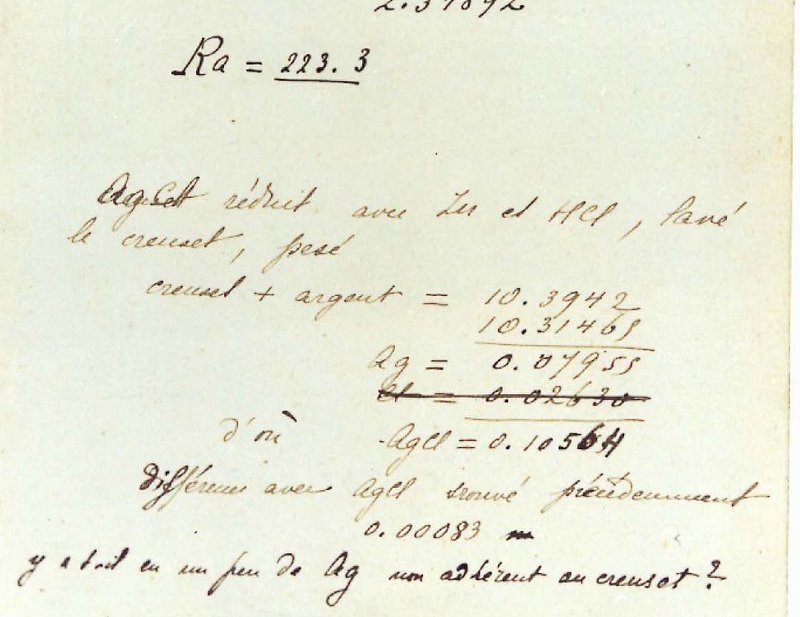 2.31892
Ra = 223.3
AgCl réduit avec Zn et HCl, lavé
le creuset, pesé
creuset + argent = 10.3942
10.31465
Ag = 0.07955
Cl = 0.02630
d'où AgCl = 0.10564
différence avec AgCl trouvé précédemment
0.00083
y a t-il eu un peu de Ag non adhérent au creuset ?